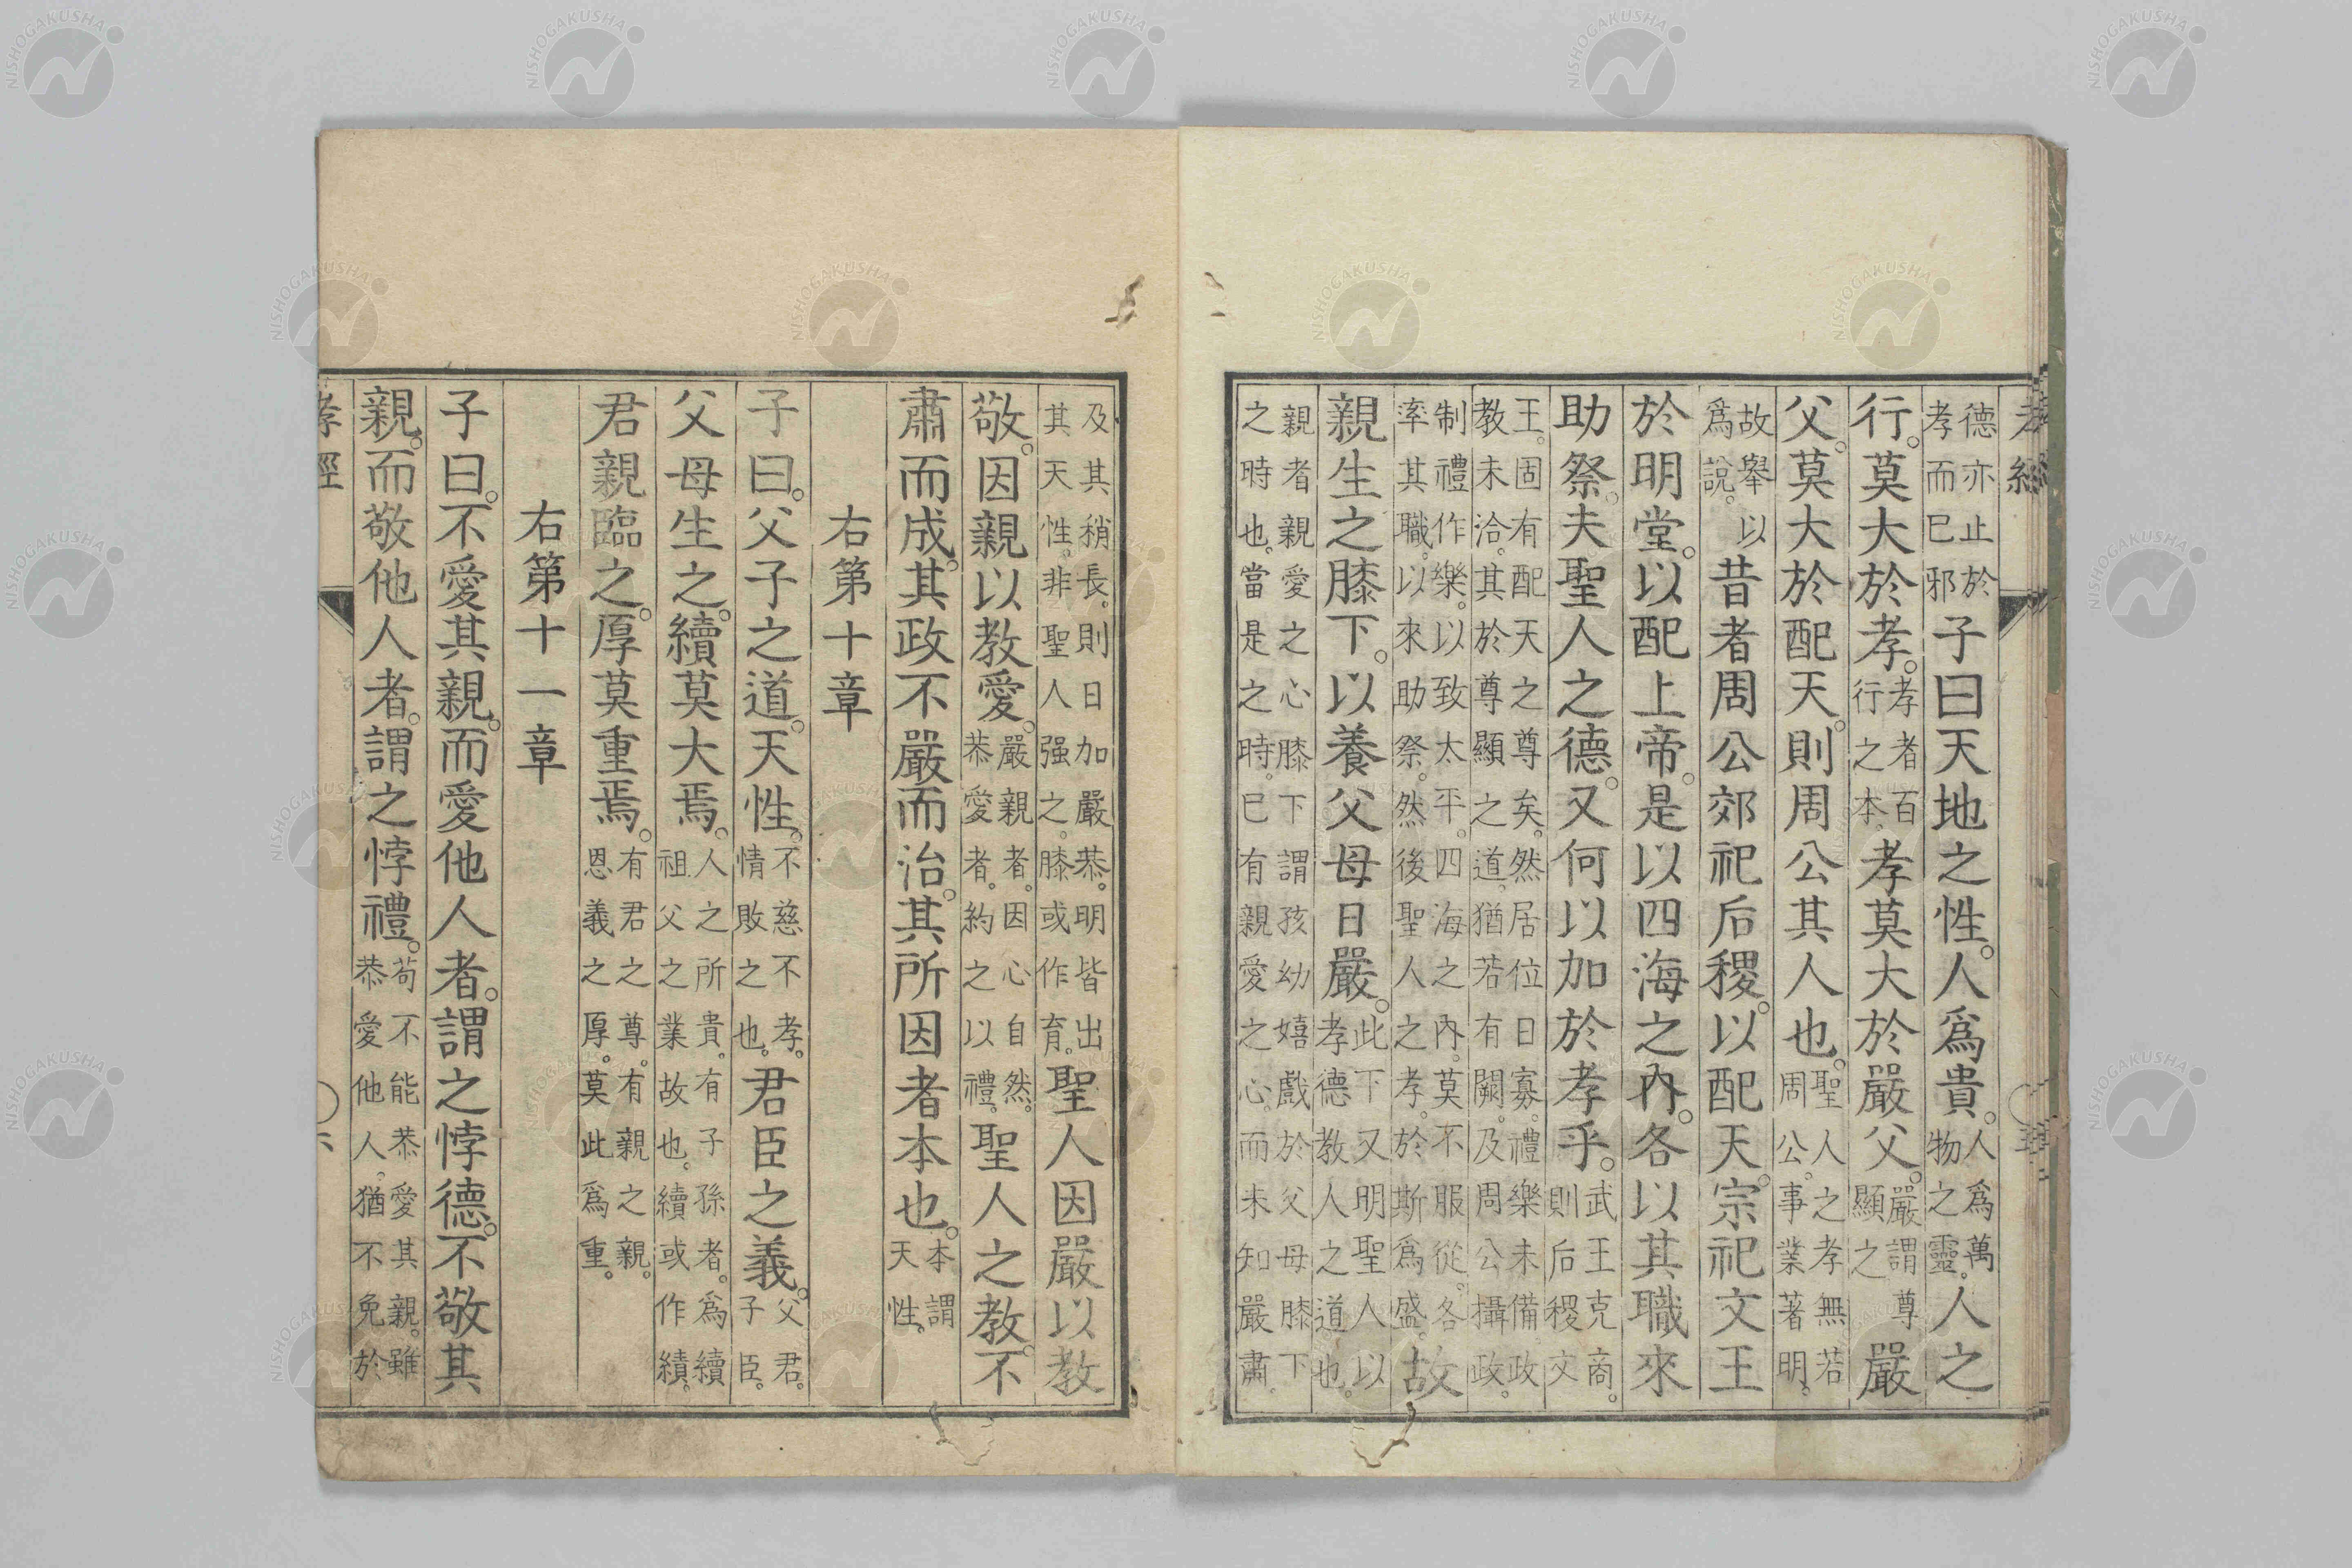 孝經
德亦止於孝而已邪子曰天地之性。人爲貴。人爲萬物之靈。人之
行。莫大於孝。孝者百行之本。孝莫大於嚴父。嚴謂尊顯之嚴
父。莫大於配天。則周公其人也。聖人之孝無若周公。事業著明。
故舉以爲說。昔者周公郊祀后稷。以配天。宗祀文王
於明堂。以配上帝。是以四海之內。各以其職來
助祭。夫聖人之德。又何以加於孝乎。武王克商。則后稷文
王。固有配天之尊矣。然居位日寡。禮樂未備。政教未洽。其於尊顯之道。猶若有闕。及周公攝政。
制禮作樂。以致太平。四海之內。莫不服從。各率其職。以來助祭。然後聖人之孝。於斯爲盛。故
親生之膝下。以養父母日嚴。此下又明聖人以孝德教人之道也。
親者親愛之心膝下謂孩幼嬉戲於父母膝下之時也。當是之時。已有親愛之心。而未知嚴肅。
及其稍長。則日加嚴恭。明皆出其天性。非聖人强之。膝或作育。聖人因嚴以教
敬。因親以教愛。嚴親者。因心自然。恭愛者。約之以禮。聖人之教。不
肅而成。其政不嚴而治。其所因者本也。本謂天性。
右第十章
子曰。父子之道。天性。不慈不孝。情敗之也。君臣之義。父君。子臣。
父母生之。續莫大焉。人之所貴。有子孫者。爲續祖父之業故也。續或作績。
君親臨之。厚莫重焉。有君之尊。有親之親。恩義之厚。莫此爲重。
右第十一章
子曰。不愛其親。而愛他人者。謂之悖德。不敬其
親。而敬他人者。謂之悖禮。苟不能恭愛其親。雖恭愛他人。猶不免於
孝經
六
NISHOGAKUSHA